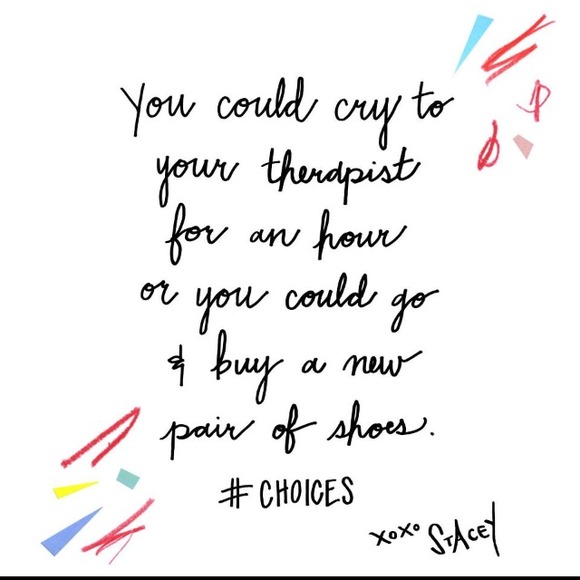 You could cry to
your therapist
for an hour
or you could go
& buy a new
pair of shoes.
# CHOICES
xoxo STACEY